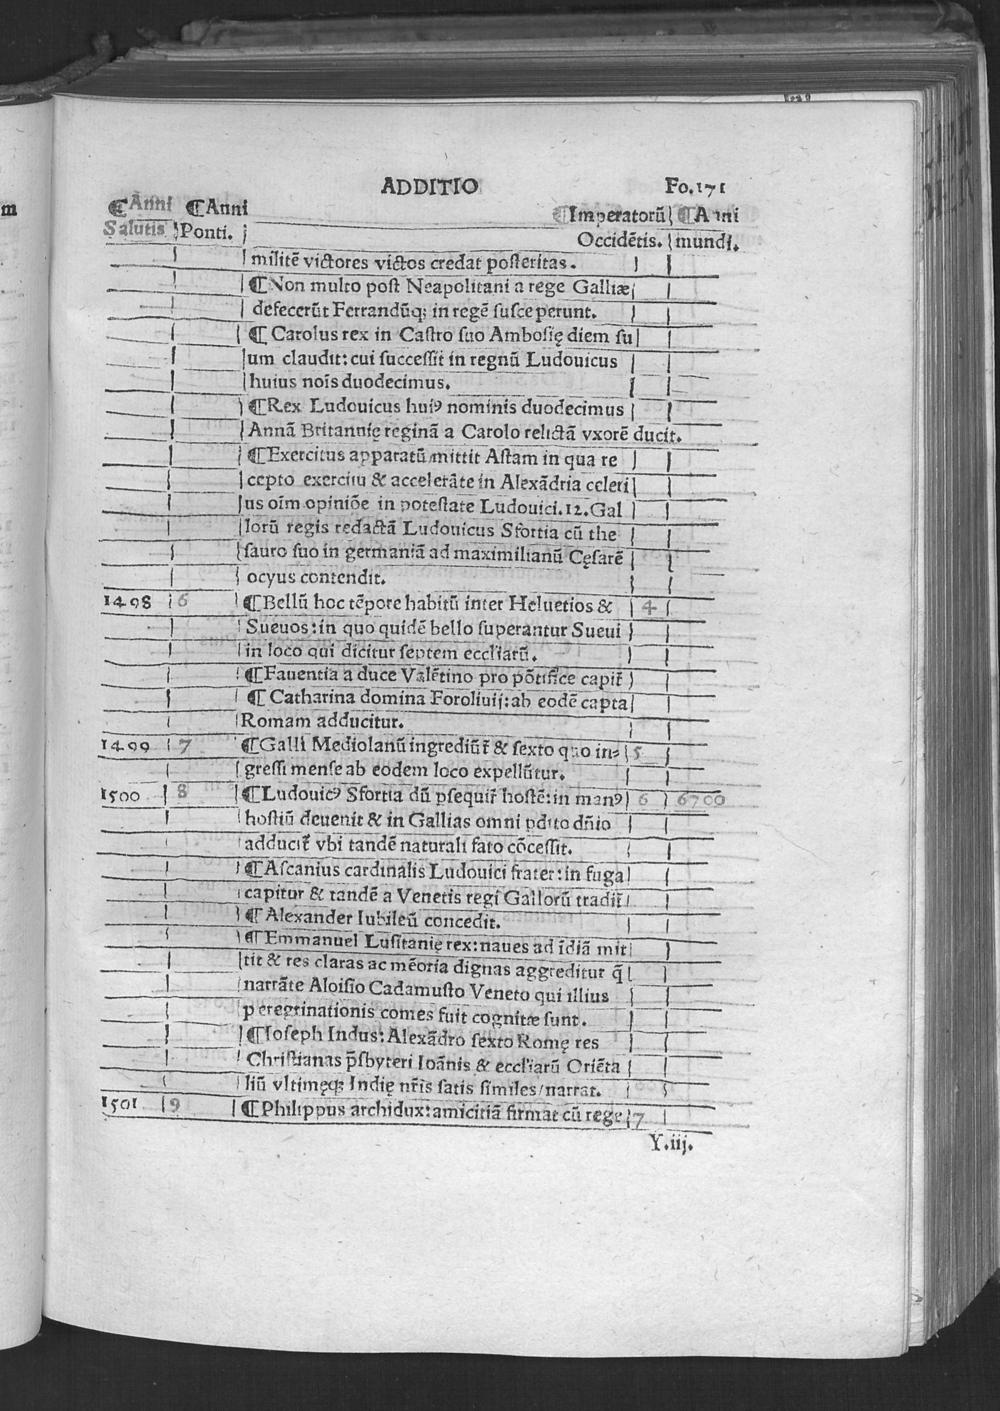 ADDITIO Fo.171
¶Anni ¶Anni ¶Imperatorū ¶Anni
Salutis Ponti. Occidētis. mundi.
militē victores victos credat posteritas.
¶Non multo post Neapolitani a rege Galliæ
defecerūt Ferrandūq; in regē susceperunt.
¶Carolus rex in Castro suo Ambosię diem su
um claudit: cui successit in regnū Ludouicus
huius nois duodecimus.
¶Rex Ludouicus huiꝰ nominis duodecimus
Annā Britannię reginā a Carolo relictā vxorē ducit.
¶Exercitus apparatū mittit Astam in qua re
cepto exercitu & accelerāte in Alexādria celeri
us oīm opiniōe in potestate Ludouici.12.Gal
lorū regis redactā Ludouicus Sfortia cū the
sauro suo in germaniā ad maximilianū Cęsarē
ocyus contendit.
1498 6 ¶Bellū hoc tēpore habitū inter Heluetios & 4
Sueuos: in quo quidē bello superantur Sueui
in loco qui dicitur septem eccliarū.
¶Fauentia a duce Valētino pro pōtifice capit᷑
¶Catharina domina Foroliuij: ab eodē capta
Romam adducitur.
1499 7 ¶Galli Mediolanū ingrediūt᷑ & sexto quo in= 5
gressi mense ab eodem loco expellūtur.
1500 8 ¶Ludouicꝰ Sfortia dū ꝑsequit᷑ hostē: in manꝰ 6 6700
hostiū deuenit & in Gallias omni ꝑdito dn̄io
adducit᷑ vbi tandē naturali fato cōcessit.
¶Ascanius cardinalis Ludouici frater: in fuga
capitur & tandē a Venetis regi Gallorū tradit᷑
¶Alexander Iubileū concedit.
¶Emmanuel Lusitanię rex: naues ad īdiā mit
tit & res claras ac mēoria dignas aggreditur q̄
narrāte Aloisio Cadamusto Veneto qui illius
peregrinationis comes fuit cognitæ sunt.
¶Ioseph Indus: Alexādro sexto Romę res
Christianas p̄sbyteri Ioānis & eccliarū Oriēta
liū vltimęq; Indię nr̄is satis similes/narrat.
1501 9 ¶Philippus archidux: amicitiā firmat cū rege 7
Y.iij.